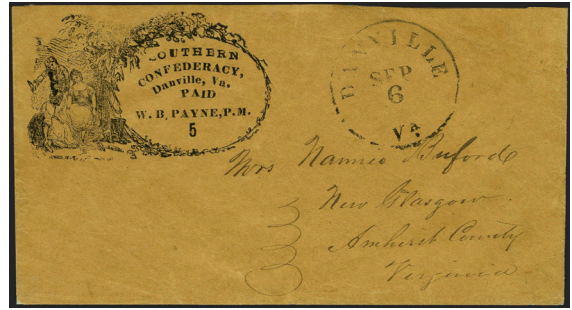 SOUTHERN
CONFEDERACY,
Danville, Va.
PAID
W. B. PAYNE, P.M.
5
DANVILLE
SEP
6
VA
Mrs Nannie Buford
New Glasgow
Amherst County
Virginia